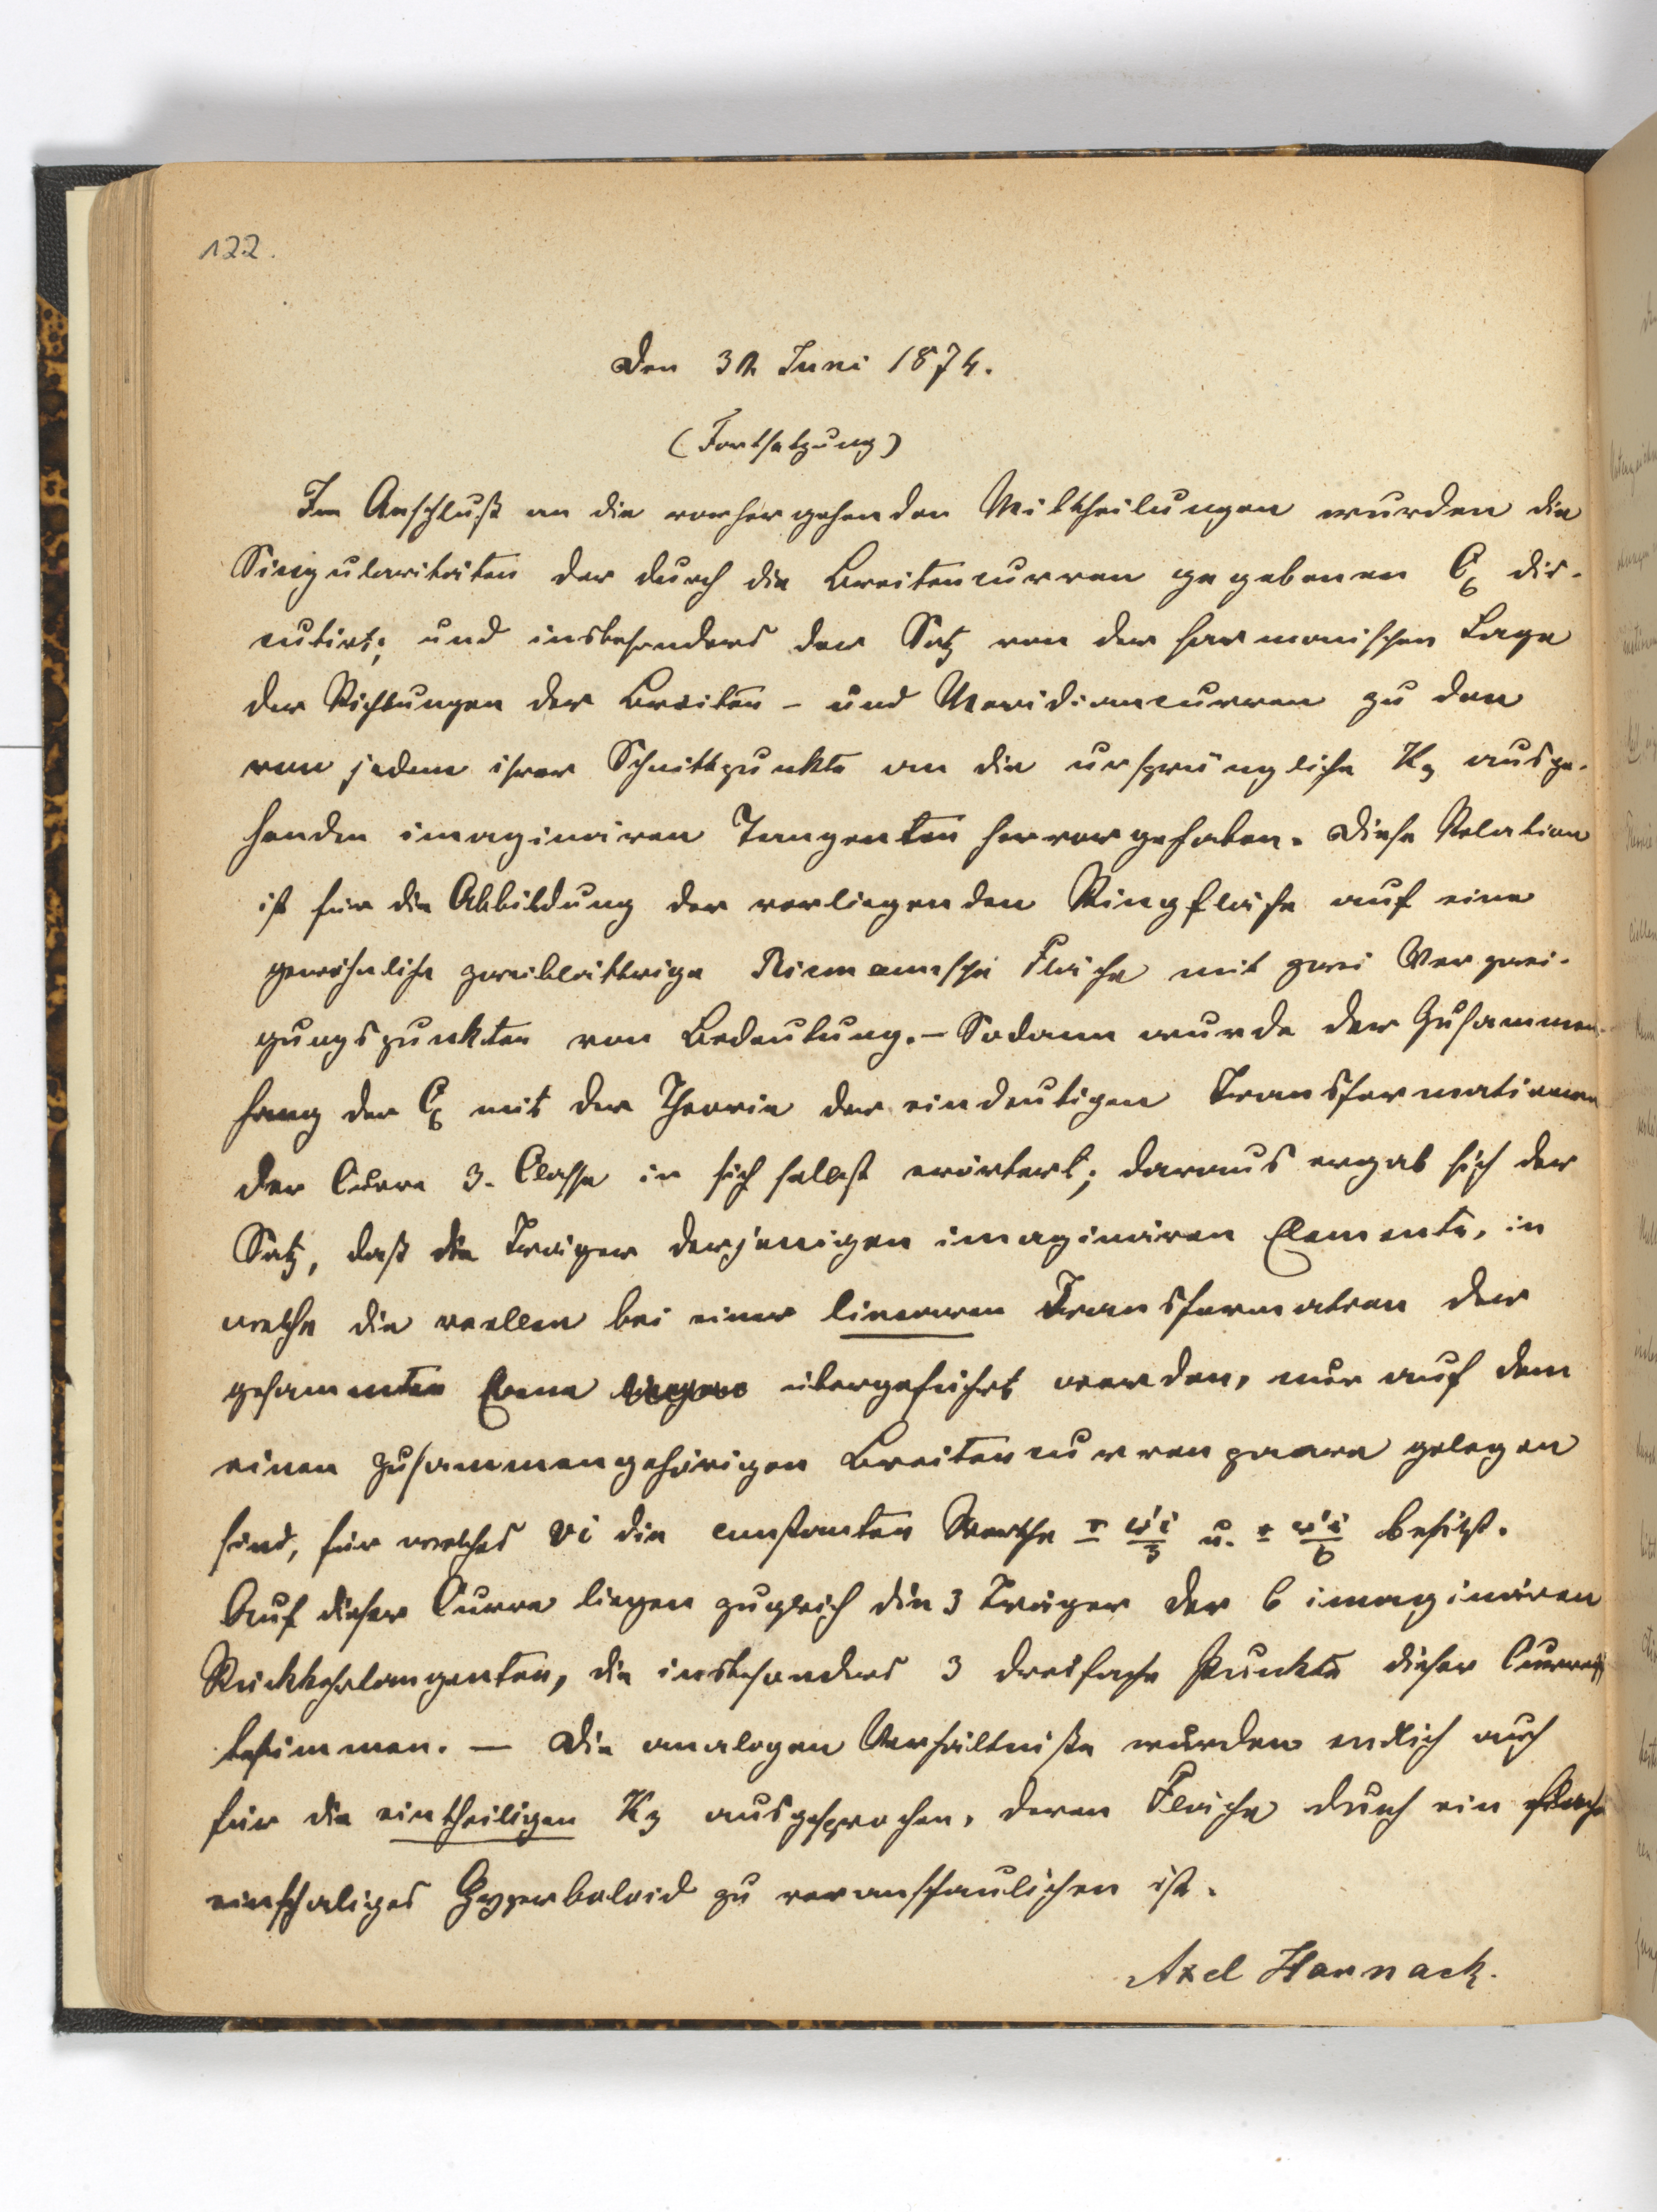 122.
Den 30. Juni 1874.
(Fortsetzung)
Im Anschluß an die vorhergehenden Mittheilungen wurden die
Singularitäten der durch die Breitencurven gegebenen C6 dis-
cutirt; und insbesonders der Satz von der harmonischen Lage
der Richtungen der Breiten- und Meridiancurven zu den
von jedem ihrer Schnittpunkte an die ursprüngliche K3 ausge-
henden imaginären Tangenten hervorgehoben. Diese Relation
ist für die Abbildung der vorliegenden Ringfläche auf eine
gewöhnliche zweiblättrige Riemannsche Fläche mit zwei Verzwei-
gungspunkten von Bedeutung. – Sodann wurde der Zusammen-
hang der C6 mit der Theorie der eindeutigen Transformationen
der Curve 3. Classe in sich selbst erörtert; daraus ergab sich der
Satz, daß die Träger derjenigen imaginären Elemente, in
welche die reellen bei einer linearen Transformation der
gesammten Ebene übergeführt werden, nur auf dem
einen zusammengehörigen Breitencurvenpaare gelegen
sind, für welches vi die constanten Werthe ± ω'i/3 u. ± ω'i/6 besitzt.
Auf dieser Curve liegen zugleich die 3 Träger der 6 imaginären
Rückkehrtangenten, die insbesonders 3 dreifache Punkte dieser Curve
bestimmen. — Die analogen Verhältniße wurden endlich auch
für die eintheiligen K3 ausgesprochen, deren Fläche durch ein flaches
einschaliges Hyperboloid zu veranschaulichen ist.
Axel Harnack.